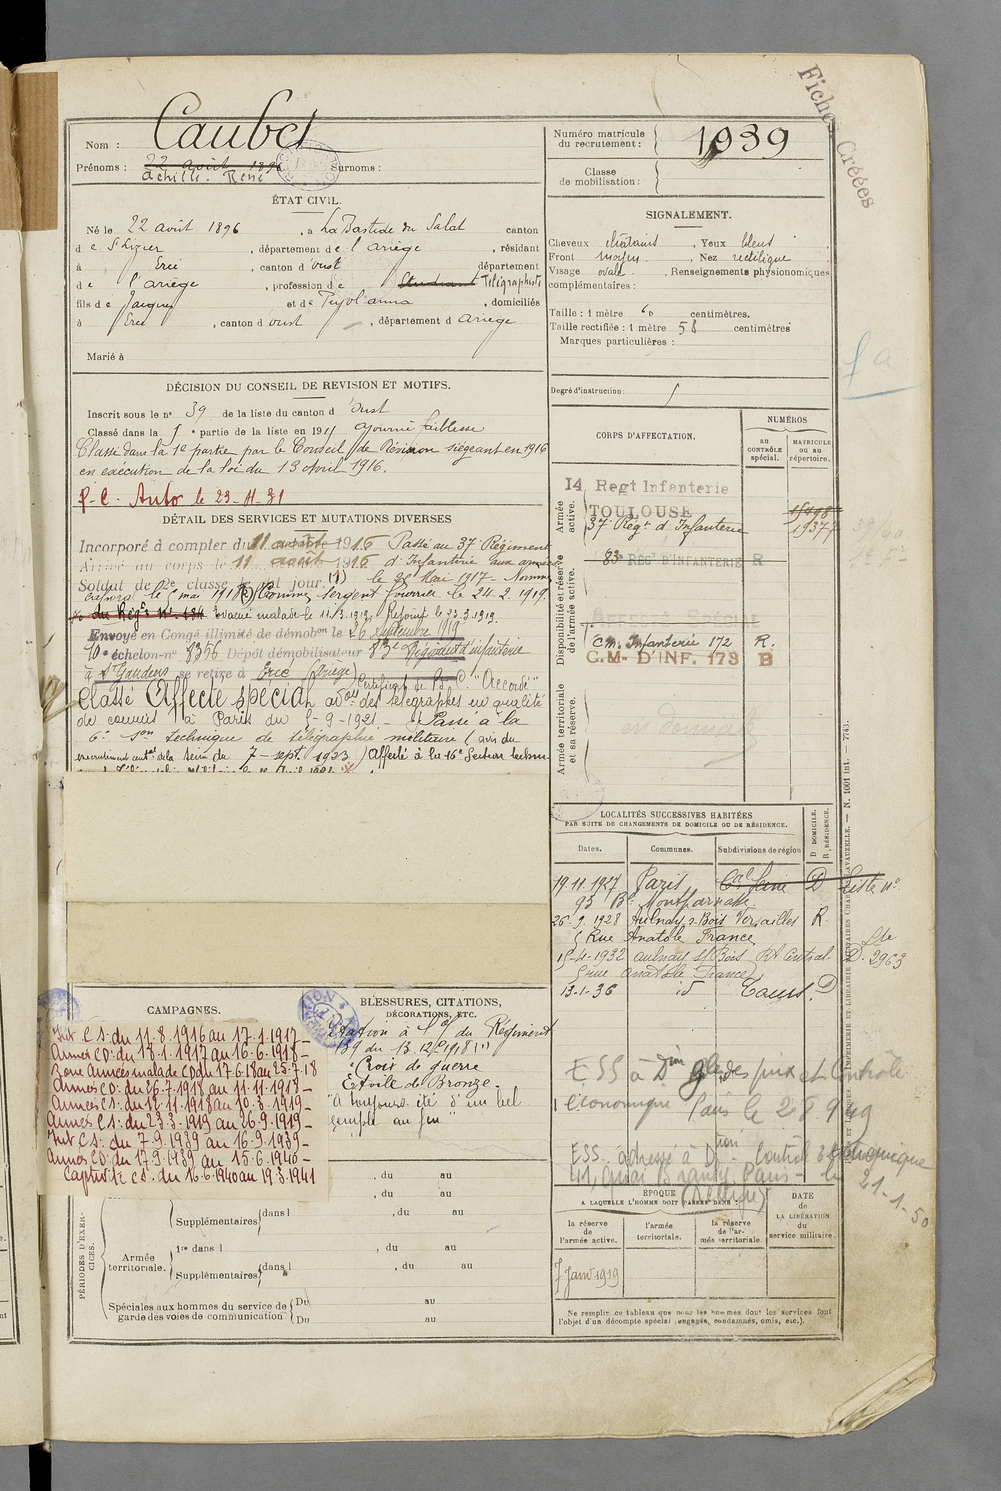 Fiches Créées
Nom : Caubet
Prénoms : 22 août 1896 Surnoms :
Achille. René
Numéro matricule du recrutement : 1939
Classe de mobilisation :
ÉTAT CIVIL.
Né le 22 août 1896, à La Bastide du Salat canton
de St Lizier, département de l'Ariège, résidant
à Ercé, canton d'Oust département
de l'Ariège, profession de Etudiant Télégraphiste
fils de Jacques et de Peyol anna, domiciliés
à Ercé, canton d oust, département d Ariège
Marié à
SIGNALEMENT.
Cheveux chatains, Yeux bleus
Front moyen, Nez rectiligne
Visage ovale, Renseignements physionomiques
complémentaires :
Taille : 1 mètre 60 centimètres.
Taille rectifiée : 1 mètre 58 centimètres
Marques particulières :
Degré d'instruction :
DÉCISION DU CONSEIL DE REVISION ET MOTIFS.
Inscrit sous le n° 39 de la liste du canton d'Oust
Classé dans la 5e partie de la liste en 1915 ajourné faiblesse
Classé dans la 1e partie par le Conseil de Révision siégeant en 1916
en exécution de la loi du 13 avril 1916.
P.C. Auto le 23-11-31
DÉTAIL DES SERVICES ET MUTATIONS DIVERSES
Incorporé à compter du 11 août 1916 Passé au 37 Régiment
Arrivé au corps le 11 août 1916 d'Infanterie aux armées
Soldat de 2e classe le dit jour. (1) le 28 Mai 1917 - Nommé
caporal le 5 mai 1918 (2) Nommé sergent fourrier le 24-2-1919.
Evacué malade le 11.3.1919. Rejoint le 23.3.1919.
Envoyé en Congé illimité de démobon le 26 septembre 1919
10e échelon-n° 8356 Dépôt démobilisateur 83e Régiment d'infanterie
à St Gaudens se retire à Ercé (Ariège) Certificat de B.C. "Accordé"
Classé Affecté spécial adon des télégraphes en qualité
de commis à Paris du 5-9-1921 - Passé à la
6e Son technique de télégraphie militaire (avis du
recrutement cral de la Seine du 7-sept. 1923) Affecté à la 16e Section techn.
CORPS D'AFFECTATION.
NUMÉROS
au CONTRÔLE spécial.
MATRICULE OU AU répertoire.
Armée active.
14 Regt Infanterie
TOULOUSE
37e Régt d'Infanterie 19377
Disponibilité et réserve de l'armée active.
83 REGt D'INFANTERIE R
AFFECTÉ SPÉCIAL
C.M. Infanterie 172 R.
C.M. D'INF. 173 B
Armée territoriale et sa réserve.
LOCALITÉS SUCCESSIVES HABITÉES
PAR SUITE DE CHANGEMENTS DE DOMICILE OU DE RÉSIDENCE.
Dates. Communes. Subdivisions de région D DOMICILE. R RÉSIDENCE.
19.11.1927 Paris Cral Seine D Liste n°
95 Bd Montparnasse.
26.9.1928 Aulnay s Bois Versailles R
5 Rue Anatole France
15-4-1932 aulnay s/Bois Rt Central D. 2963
5 rue Anatole France
13-1-36 id D
CAMPAGNES.
Int CS: du 11.8.1916 au 17.1.1917 -
Armées CD: du 18.1.1917 au 16.6.1918 -
Zone Armées malade CD du 17.6.18 au 25.7.18
Armées CD: du 26.7.1918 au 11.11.1918 -
Armées CS: du 12.11.1918 au 10.3.1919 -
Armées CS: du 23.3.1919 au 26.9.1919 -
Int CS: du 7.9.1939 au 16.9.1939 -
Armées CD: du 17.9.1939 au 15.6.1940 -
Captivité CS: du 16.6.1940 au 19.3.1941
BLESSURES, CITATIONS,
DÉCORATIONS, ETC.
Citation à l'O/ du Régiment
139 du 13.12.1918 (")
Croix de guerre
Etoile de Bronze.
"A toujours été d'un bel
exemple au feu"
ESS à Don Gle des prix et Contrôle
économique Paris le 2 8 949
ESS. adressé à Dtion Contrôle Economique
41, Quai Branly Paris - le 21-1-50
PÉRIODES D'EXERCICES.
, du au
, du au
Supplémentaires dans l , du au
Armée territoriale.
1re dans l , du au
Supplémentaires dans l , du au
Spéciales aux hommes du service de garde des voies de communication.
Du au
Du au
ÉPOQUE
A LAQUELLE L'HOMME DOIT PASSER DANS :
DATE DE LA LIBÉRATION du service militaire.
la réserve de l'armée active.
l'armée territoriale.
la réserve de l'armée territoriale.
Janv 1919
Ne remplir ce tableau que pour les hommes dont les services font
l'objet d'un décompte spécial (engagés, condamnés, omis, etc.).